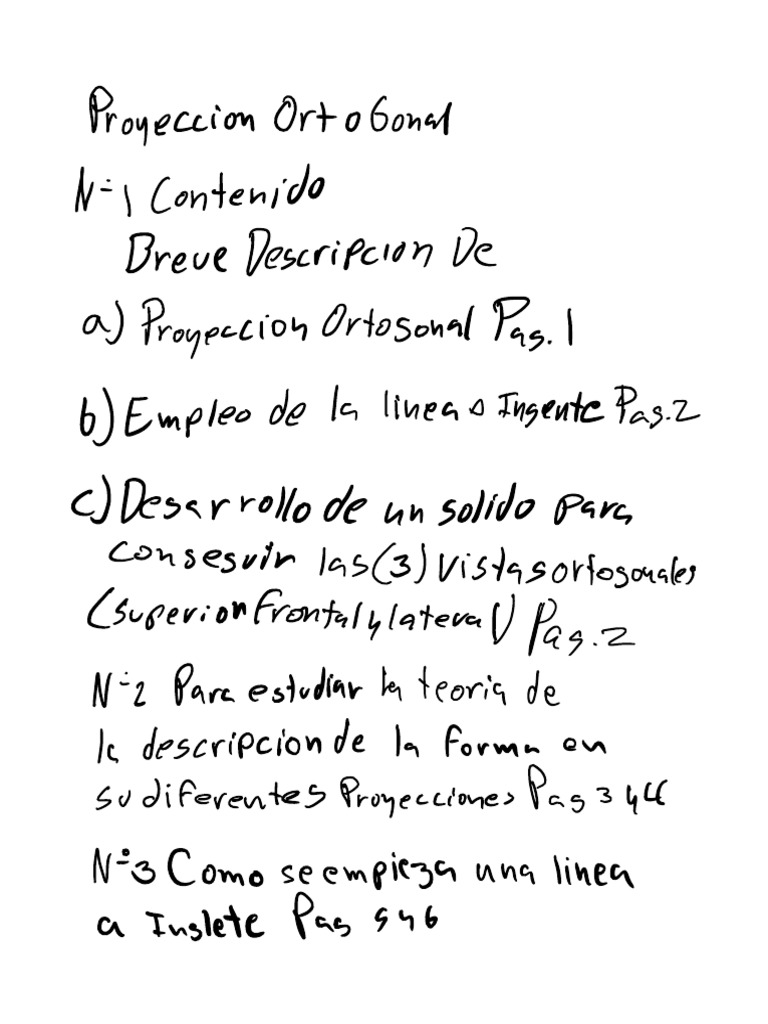 Proyeccion OrtoGonal
N=1 Contenido
Breve Descripcion De
a) Proyeccion Ortogonal Pag. 1
b) Empleo de la linea a Ingente Pag. 2
c) Desarrollo de un solido para
conseguir las (3) vistas ortogonales
(superior frontal y lateral) Pag. 2
N=2 Para estudiar la teoria de
la descripcion de la forma en
su diferentes Proyecciones Pag 3 y 4
N=3 Como se empieza una linea
a Inglete Pag 5 y 6